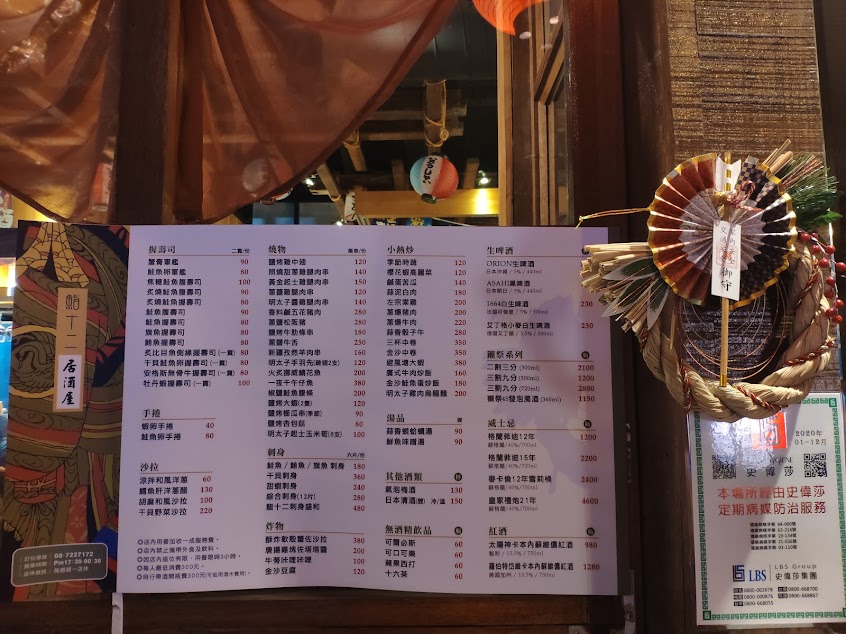 鮨十二
居酒屋
訂位專線 08-7227172
營業時間 Pm17:30-00:30
握壽司 二貫/份
蟹膏軍艦 90
鮭魚卵軍艦 80
焦糖鮭魚腹壽司 100
炙燒鮭魚腹壽司 90
炙燒鮭魚壽司 80
鮭魚腹壽司 90
鮭魚握壽司 80
旗魚握壽司 80
鮪魚握壽司 80
炙比目魚側緣握壽司(一貫) 80
干貝鮭魚卵握壽司(一貫) 80
安格斯無骨牛握壽司(一貫) 80
牡丹蝦握壽司(一貫) 100
手捲
蝦卵手捲 40
鮭魚卵手捲 80
沙拉
涼拌和風洋蔥 60
鱈魚肝洋蔥醋 130
胡麻和風沙拉 100
干貝野菜沙拉 220
燒物
鹽烤雞中翅 120
照燒甜蔥雞腿肉串 140
黃金起士雞腿肉串 140
蔥鹽雞腿肉串 120
明太子雞腿肉串 140
香料鹹五花豬肉 200
蔥鹽松阪豬 280
鹽烤牛肋條串 180
蔥鹽牛舌 250
新疆孜然羊肉串 160
明太子手羽先 120
火炙爆漿鱈魚花 200
一夜干午仔魚 380
椒鹽鮭魚腹條 200
鹽烤大蝦(2隻) 120
鹽烤櫻瓜串(季節) 90
鹽烤杏包菇 80
明太子起士玉米筍(6支) 100
刺身 六片/份
鮭魚/鮪魚/旗魚刺身 180
干貝刺身 360
甜蝦刺身 240
綜合刺身(12片) 280
鮨十二刺身盛和 480
炸物
酥炸軟殼蟹佐沙拉 380
唐揚雞塊佐塔塔醬 200
牛蒡咔哩咔哩 100
金沙豆腐 120
小熱炒
季節時蔬 120
櫻花蝦高麗菜 160
鹹蛋苦瓜 140
蒜泥白肉 180
左宗棠雞 200
蔥爆豬肉 200
蔥爆牛肉 220
蒜香骰子牛 280
三杯中卷 350
金沙中卷 350
避風塘大蝦 380
廣式牛肉炒飯 160
金沙鮭魚蛋炒飯 180
明太子雞肉烏龍麵 200
湯品
蒜香蜆蛤蠣湯 90
鮮魚味噌湯 90
其他酒類
氣泡梅酒 130
日本清酒(壺) 冷/溫 150
無酒精飲品
可爾必斯 60
可口可樂 60
蘋果西打 60
十六茶 60
生啤酒
ORION生啤酒
日本沖繩 / 5% / 440ml
ASAHI黑啤酒
日本朝日 / 5% / 440ml
1664白生啤酒 230
艾丁格小麥白生啤酒 230
獺祭系列
二割三分(300ml) 2100
三割九分(300ml) 1200
三割九分(720ml) 2600
獺祭45發泡濁酒(360ml) 1150
威士忌
格蘭菲迪12年 1200
蘇格蘭/40%/700ml
格蘭菲迪15年 2200
蘇格蘭/40%/700ml
麥卡倫12年雪莉桶 2400
蘇格蘭/40%/700ml
皇家禮炮21年 4600
蘇格蘭/40%/700ml
紅酒
太陽神卡本內蘇維儂紅酒 980
智利 / 13.5% / 750ml
羅伯特岱維卡本內蘇維儂紅酒 1280
美國加州 / 13.5% / 750ml
◎店內用餐加收一成服務費。
◎店內禁止攜帶外食及飲料。
◎因店內座位有限,用餐限時3小時。
◎每人最低消費300元。
◎自行帶酒開瓶費300元
御守
2020年
01-12月
史偉莎
本場所經由史偉莎
定期病媒防治服務
LBS
LBS Group
史偉莎集團
0800-002678
0800-000876
0800-668055
0800-668700
0800-668867